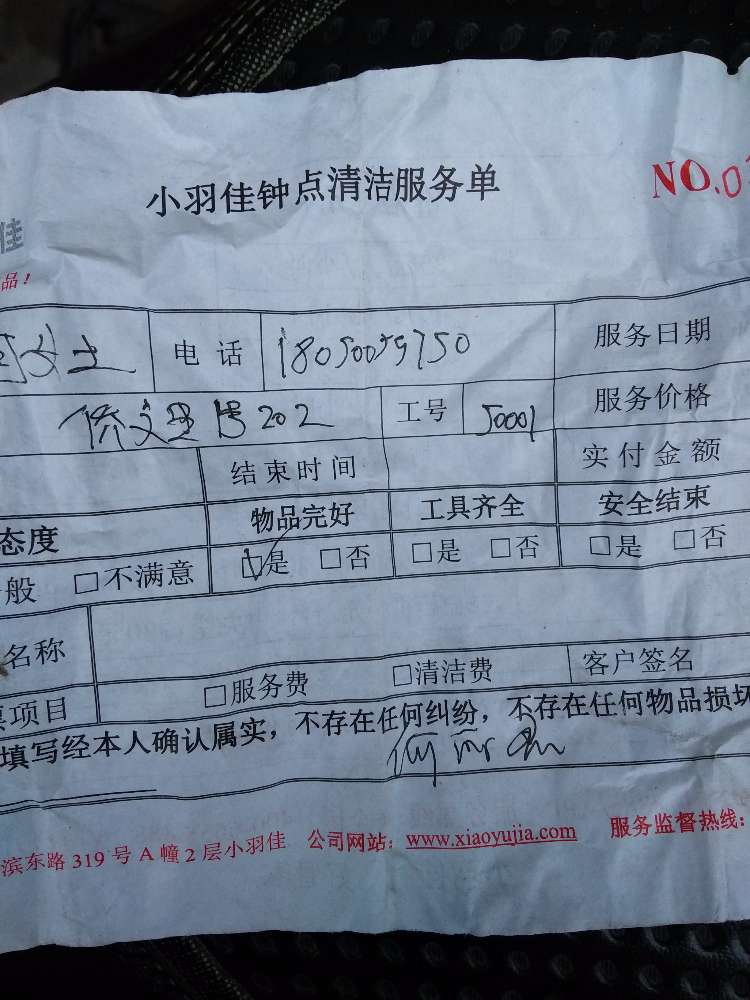 小羽佳钟点清洁服务单
NO.0
佳
品！
女士 电话 18050059750 服务日期
202 工号 50001 服务价格
结束时间 实付金额
态度 物品完好 工具齐全 安全结束
般 □不满意 ☑是 □否 □是 □否 □是 □否
名称
项目 □服务费 □清洁费 客户签名
填写经本人确认属实，不存在任何纠纷，不存在任何物品损坏
滨东路319号A幢2层小羽佳 公司网站：www.xiaoyujia.com 服务监督热线：